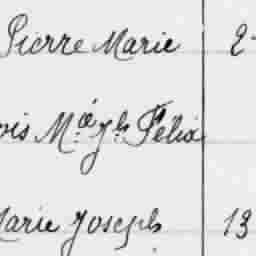 Pierre Marie 2
ois M.é Jh Félix
Marie Joseph 13